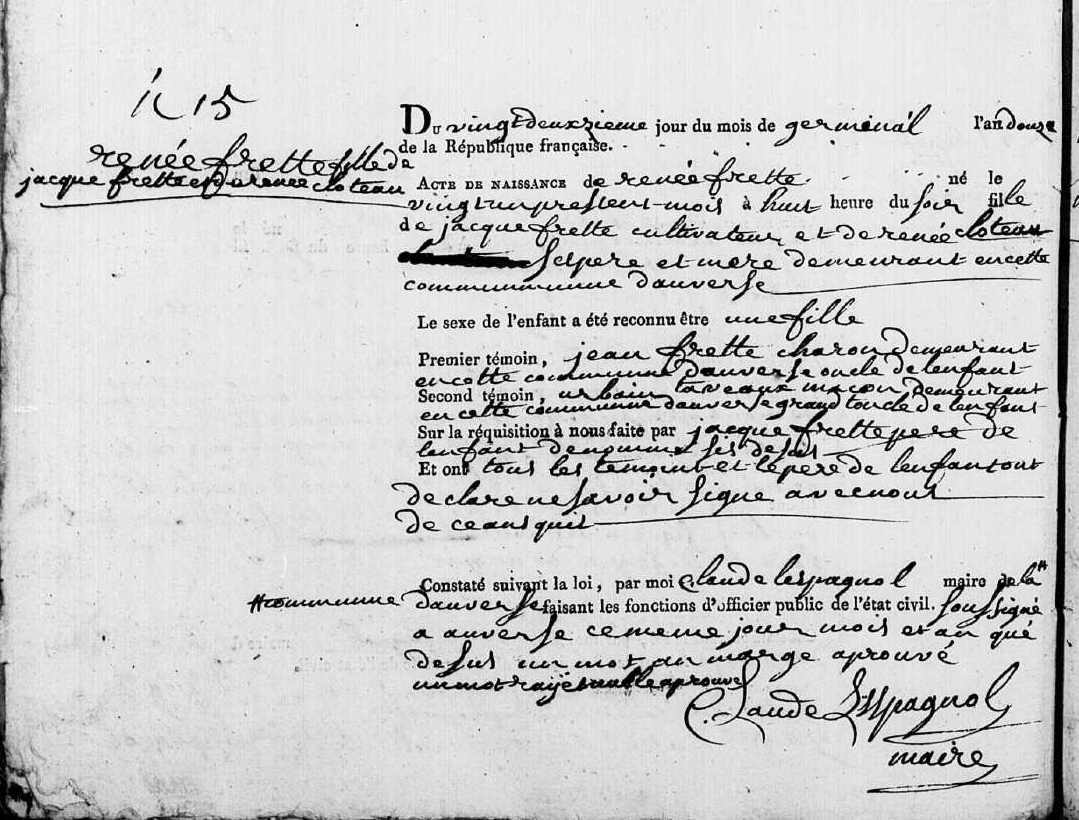 n 15
renée frette fille de
jacque frette et de renée cloteau
Du vingt deuxzieme jour du mois de germinal l'an douze
de la République française.
Acte de naissance de renée frette né le
vingt un present mois à huit heure du soir fille
de jacque frette cultivateur et de renée cloteau
ses pere et mere demeurant en cette
communmune dauverse
Le sexe de l'enfant a été reconnu être une fille
Premier témoin, jean frette charon demeurant
en cette commune dauverse oncle de lenfant
Second témoin, urbain taveaux maçon demeurant
en cette commune dauverse grand toncle de lenfant
Sur la réquisition à nous faite par jacque frette pere de
lenfant denomme
Et ont tous les temoint et lepere de lenfant ont
declare ne savoir signe avec nous
de ce anquit
Constaté suivant la loi, par moi Claude lespagnol maire de la #
# commune
dauverse faisant les fonctions d'officier public de l'état civil. soussigné
a auverse ce meme jour mois et an qué
desus un mot an marge aprouvé
un mot rayé nulle aprouve
Claude Lespagnol
maire